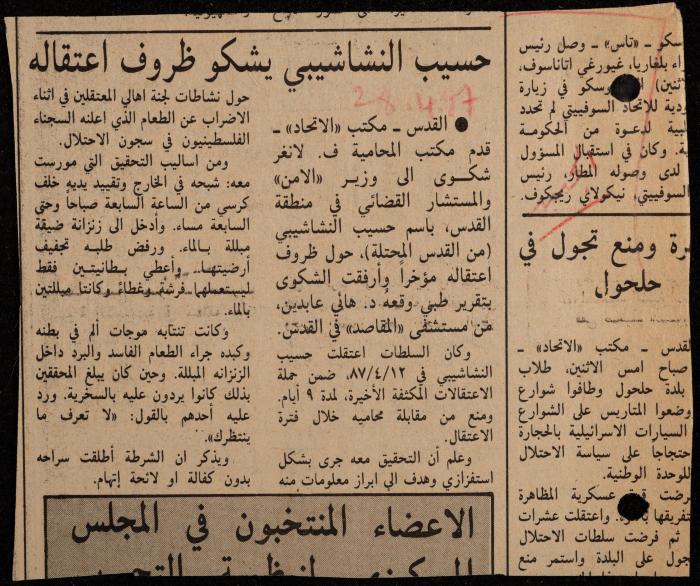 حسيب النشاشيبي يشكو ظروف اعتقاله
28.4.87
● القدس ـ مكتب «الاتحاد» ـ
قدم مكتب المحامية ف. لانغر
شكوى الى وزير «الامن»
والمستشار القضائي في منطقة
القدس، باسم حسيب النشاشيبي
(من القدس المحتلة)، حول ظروف
اعتقاله مؤخراً وأرفقت الشكوى
بتقرير طبي وقعه د. هاني عابدين،
من مستشفى «المقاصد» في القدس.
وكان السلطات اعتقلت حسيب
النشاشيبي في ٨٧/٤/١٢، ضمن حملة
الاعتقالات المكثفة الأخيرة، لمدة ٩ أيام.
ومنع من مقابلة محاميه خلال فترة
الاعتقال.
وعلم أن التحقيق معه جرى بشكل
استفزازي وهدف الى ابراز معلومات منه
حول نشاطات لجنة اهالي المعتقلين في اثناء
الاضراب عن الطعام الذي اعلنه السجناء
الفلسطينيون في سجون الاحتلال.
ومن اساليب التحقيق التي مورست
معه: شبحه في الخارج وتقييد يديه خلف
كرسي من الساعة السابعة صباحاً وحتى
السابعة مساء. وأدخل الى زنزانة ضيقة
مبللة بـالماء. ورفض طلبـه تجفيف
أرضيتهـا. وأعطي بـطانيتـين فقط
ليستعملها فرشة وغطاءً وكانتا مبللتين
بالماء.
وكانت تنتابه موجات ألم في بطنه
وكبده جراء الطعام الفاسد والبرد داخل
الزنزانه المبللة. وحين كان يبلغ المحققين
بذلك كانوا يردون عليه بالسخرية. ورد
عليه أحدهم بالقول: «لا تعرف ما
ينتظرك».
ويذكر ان الشرطة أطلقت سراحه
بدون كفالة او لائحة إتهام.
الاعضاء المنتخبون في المجلس
سكو ـ «تاس» ـ وصل رئيس
اء بلغاريا، غيورغي اتاناسوف،
ثنين) وسكو في زيارة
ودية للاتحاد السوفييتي لم تحدد
بية لدعوة من الحكومة
ية. وكان في استقبال المسؤول
لدى وصوله المطار، رئيس
السوفييتي، نيكولاي ريجكوف.
رة ومنع تجول في
حلحول
القدس ـ مكتب «الاتحاد» ـ
صباح امس الاثنين، طلاب
بلدة حلحول وطافوا شوارع
وضعوا المتاريس على الشوارع
السيارات الاسرائيلية بالحجارة
حتجاجاً على سياسة الاحتلال
للوحدة الوطنية.
رضت عسكرية المظاهرة
تفريقها واعتقلت عشرات
ثم فرضت سلطات الاحتلال
جول على البلدة واستمر منع